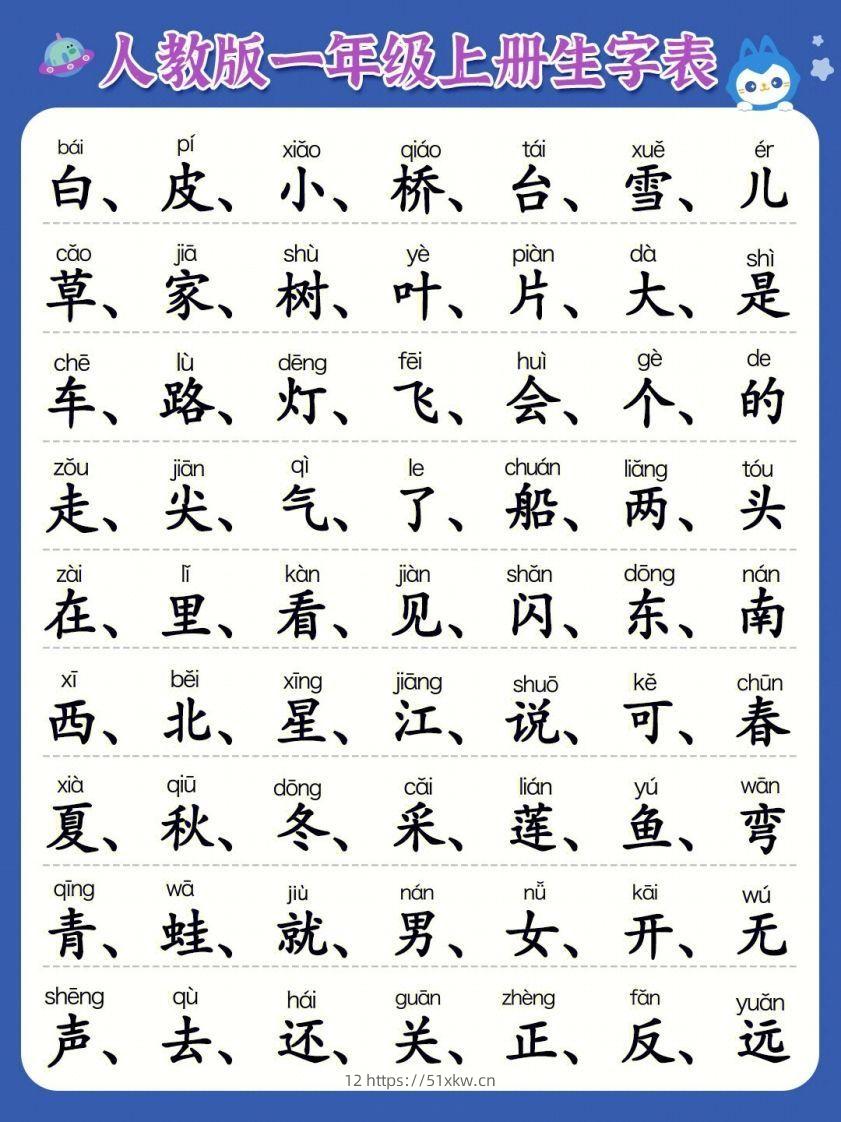 人教版一年级上册生字表
bái pí xiǎo qiáo tái xuě ér
白、皮、小、桥、台、雪、儿
cǎo jiā shù yè piàn dà shì
草、家、树、叶、片、大、是
chē lù dēng fēi huì gè de
车、路、灯、飞、会、个、的
zǒu jiān qì le chuán liǎng tóu
走、尖、气、了、船、两、头
zài lǐ kàn jiàn shǎn dōng nán
在、里、看、见、闪、东、南
xī běi xīng jiāng shuō kě chūn
西、北、星、江、说、可、春
xià qiū dōng cǎi lián yú wān
夏、秋、冬、采、莲、鱼、弯
qīng wā jiù nán nǚ kāi wú
青、蛙、就、男、女、开、无
shēng qù hái guān zhèng fǎn yuǎn
声、去、还、关、正、反、远
12 https://51xkw.cn